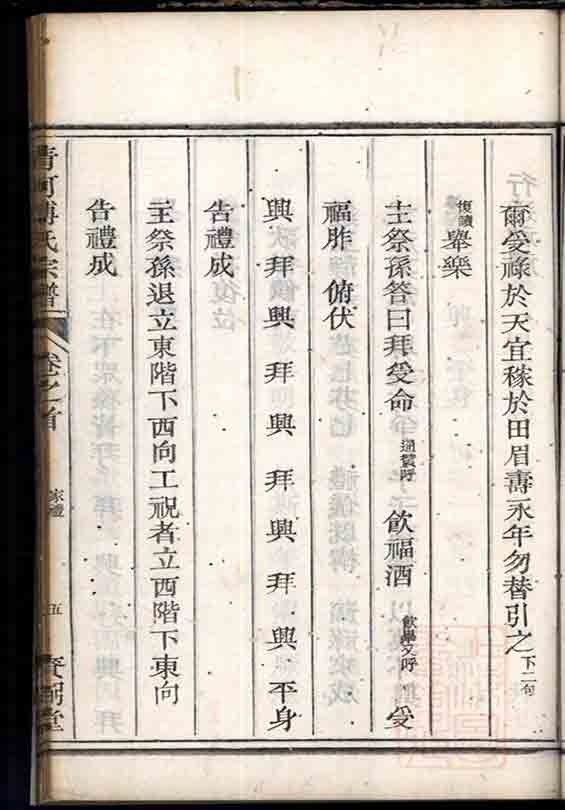 爾受祿於天宜稼於田眉壽永年勿替引之 下二句
復讀 舉樂
主祭孫答曰拜受命 通贊呼 飲福酒 飲畢又呼 受
福胙 俯伏
興 拜 興 拜 興 拜 興 拜 興 平身
告禮成
主祭孫退立東階下西向工祝者立西階下東向
告禮成
清河傅氏宗譜 卷之首 家禮 五